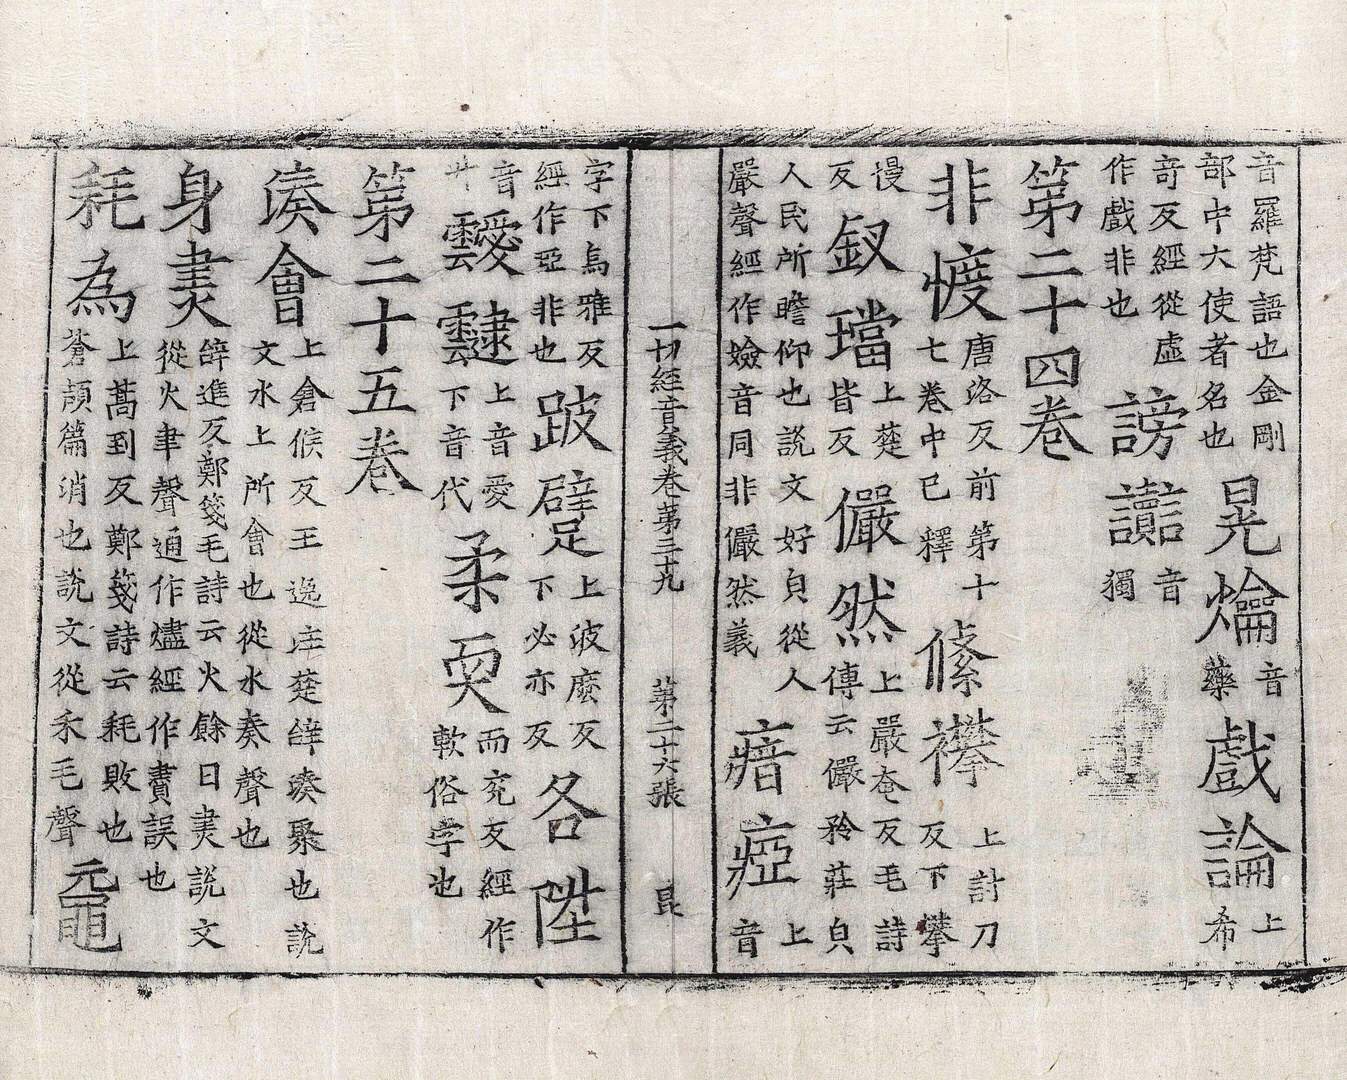 音羅梵語也金剛
部中大使者名也
晃爚
音
藥
戲論
上
希
奇反經從虛
作戲非也
謗讟
音
獨
第二十四卷
非
唐洛反前第十
七卷中已釋
絛襻
上討刀
反下攀
慢
反
釵璫
上楚
皆反
儼然
上嚴奄反毛詩
傳云儼矜莊皃
人民所瞻仰也說文好皃從人
嚴聲經作嬐音同非儼然義
瘖瘂
上
音
一切經音義卷第三十九 第二十六張 昆
字下烏雅反
經作亞非也
跛躄
上波麼反
下必亦反
各陞
音
升
靉靆
上音愛
下音代
柔耎
而兖反經作
軟俗字也
第二十五卷
湊會
上倉候反王逸注楚辝湊聚也說
文水上所會也從水奏聲也
身㶳
辝進反鄭箋毛詩云火餘曰㶳說文
從火聿聲通作燼經作賮誤也
耗為
上蒿到反鄭箋詩云耗敗也
蒼頡篇消也說文從禾毛聲
黿